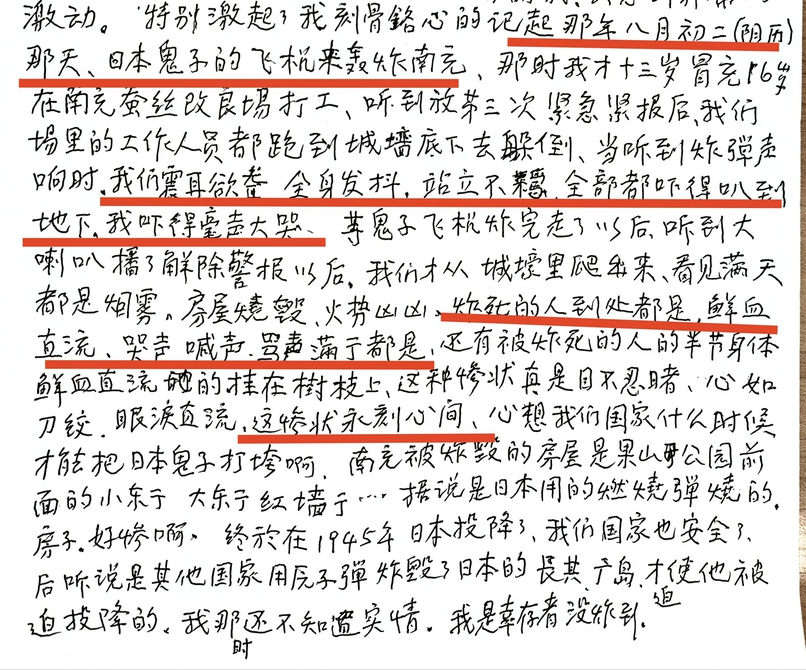 激动。特别激起了我刻骨铭心的记起那年八月初二(阴历)
那天、日本鬼子的飞机来轰炸南充、那时我才十三岁冒充16岁
在南充蚕丝改良場打工、听到放第三次紧急警报后、我们
場里的工作人员都跑到城墙底下去躲倒、当听到炸弹声
响时、我们震耳欲聋 全身发抖、站立不稳、全部都吓得叭到
地下。我吓得毫声大哭、等鬼子飞机炸完走了以后、听到大
喇叭播了解除警报以后。我们才从城壕里爬出来、看见满天
都是烟雾。房屋燒毁、火势凶凶、炸死的人到处都是、鲜血
直流、哭声 喊声、骂声满于都是、还有被炸死的人的半节身体
鲜血直流 地的挂在樹枝上、这种惨状真是目不忍睹、心如
刀绞、眼淚直流、这惨状永刻心间、心想我们国家什么时候
才能把日本鬼子打垮啊、南充被炸毁的房屋是果山公园前
面的小东于 大东于 红墙于… 据说是日本用的燃燒弹燒的。
房子。好惨啊。终於在1945年日本投降了、我们国家也安全了、
后听说是其他国家用原子弹炸毁了日本的長其、广岛、才使他被
迫投降的。我那时还不知道实情。我是幸存者没炸到。迫